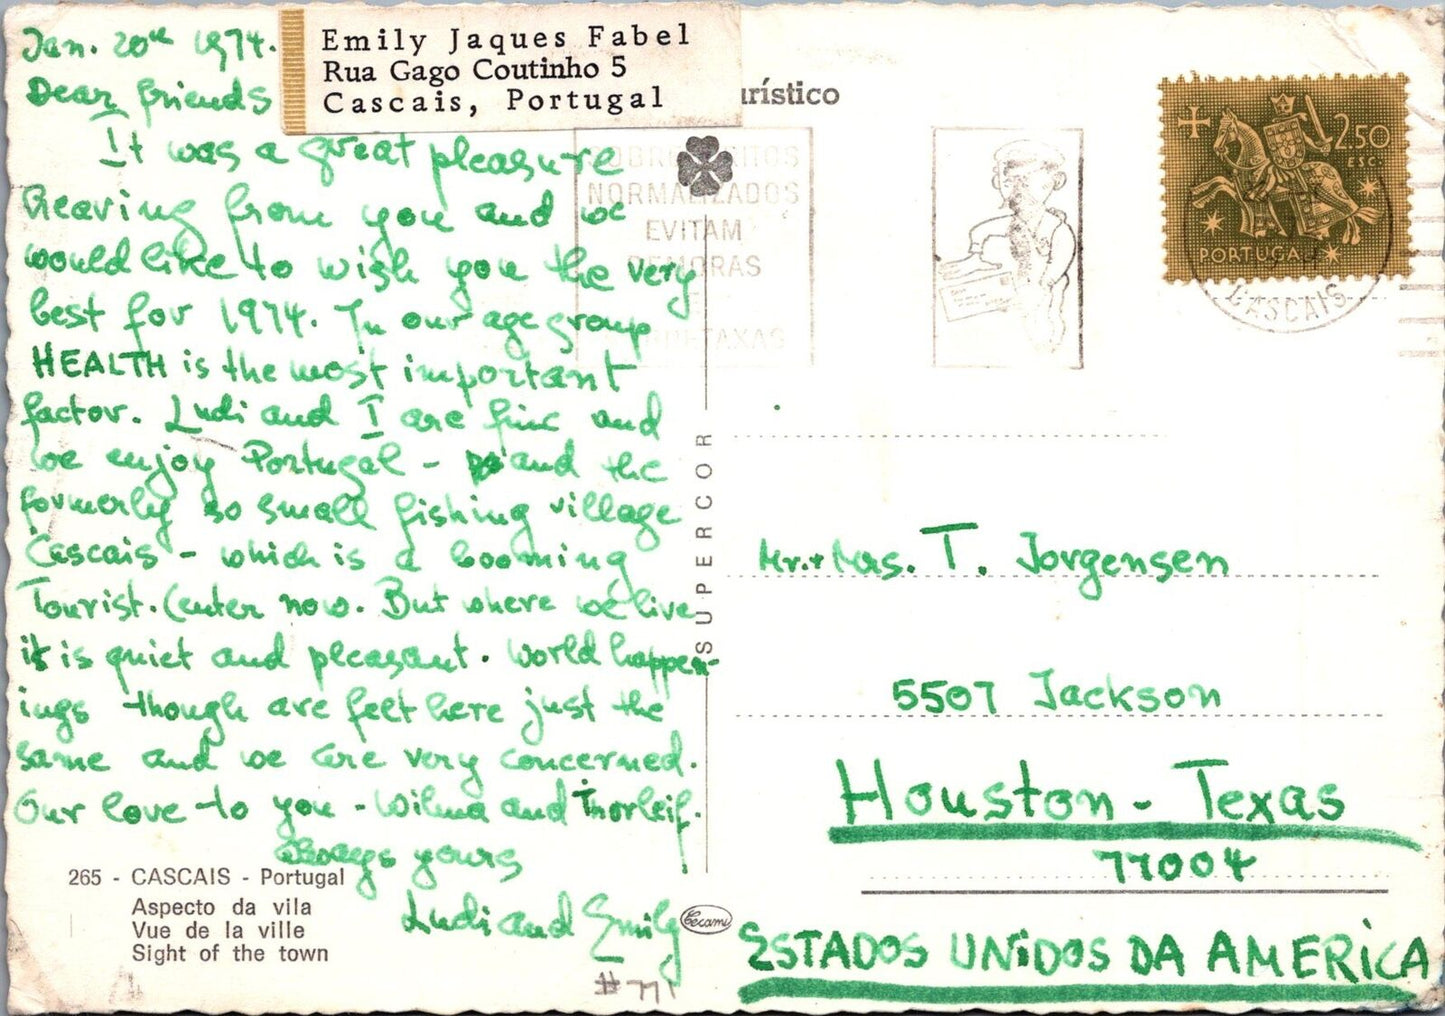 Jan. 20th 1974.
Emily Jaques Fabel
Rua Gago Coutinho 5
Cascais, Portugal
urístico
Dear friends
It was a great pleasure
hearing from you and we
would like to wish you the very
best for 1974. In our age group
HEALTH is the most important
factor. Ludi and I are fine and
we enjoy Portugal - and the
formerly so small fishing village
Cascais - which is a booming
Tourist. Center now. But where we live
it is quiet and pleasant. World happen-
ings though are felt here just the
same and we are very concerned.
Our love to you - Wilma and Thorleif.
Always yours
Ludi and Emily
265 - CASCAIS - Portugal
Aspecto da vila
Vue de la ville
Sight of the town
# 771
SUPERCOR
Cecami
SOBRESCRITOS
NORMALIZADOS
EVITAM
DEMORAS
E
SOBRETAXAS
2.50
ESC.
PORTUGAL
CASCAIS
Mr. + Mrs. T. Jorgensen
5507 Jackson
Houston - Texas
77004
ESTADOS UNiDOS DA AMERiCA